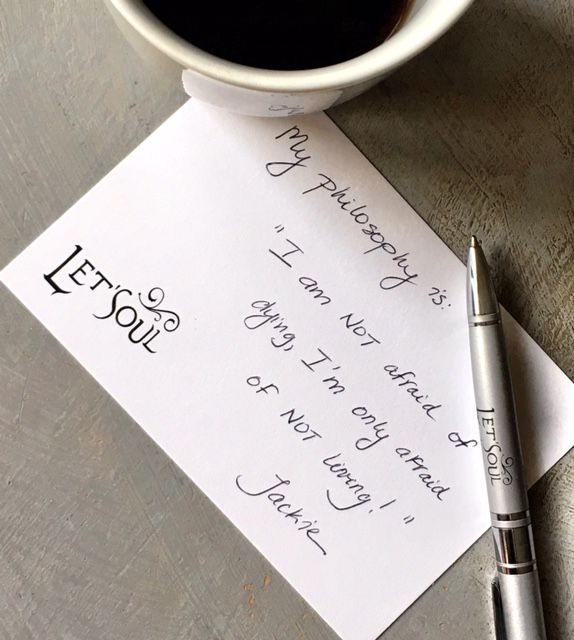 My philosophy is:
"I am NOT afraid of
dying, I'm only afraid
of NOT living!"
Jackie
LET'SOUL
LET'SOUL